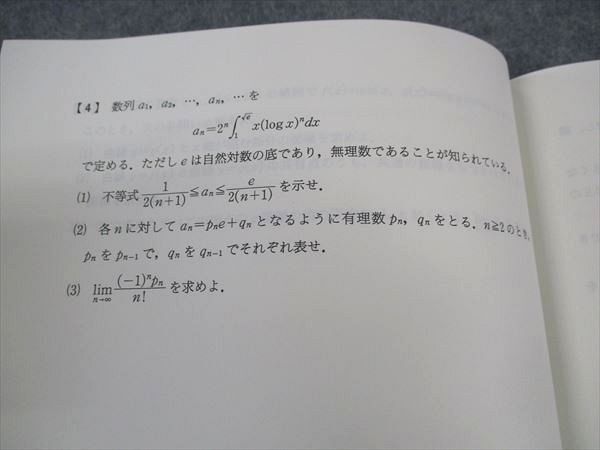 【4】 数列 a₁, a₂, …, aₙ, … を
aₙ=2ⁿ∫₁^√e x(log x)ⁿdx
で定める．ただし e は自然対数の底であり，無理数であることが知られている．
(1) 不等式 1/2(n+1) ≦ aₙ ≦ e/2(n+1) を示せ．
(2) 各 n に対して aₙ=pₙe+qₙ となるように有理数 pₙ, qₙ をとる．n≧2 のとき，
pₙ を pₙ₋₁ で，qₙ を qₙ₋₁ でそれぞれ表せ．
(3) lim n→∞ (−1)ⁿpₙ/n! を求めよ．